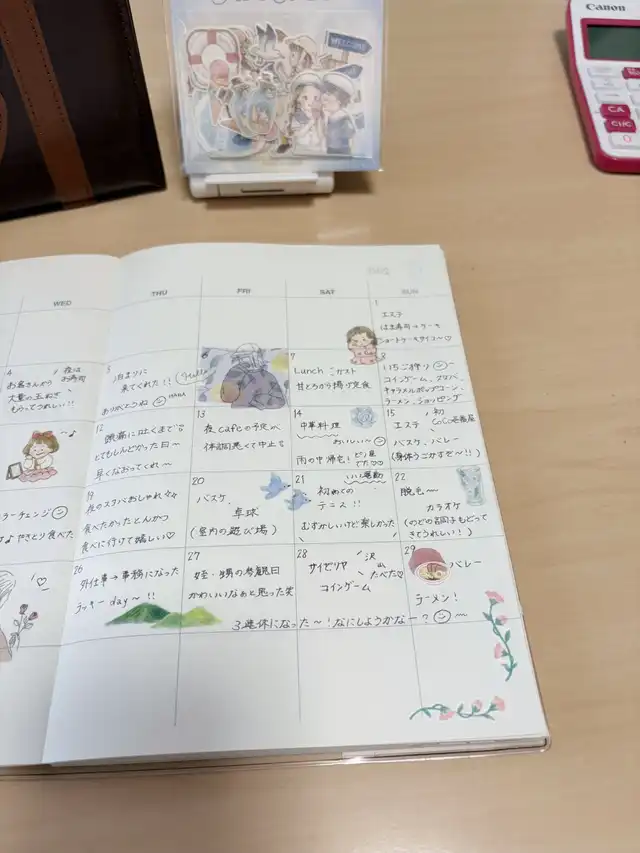 Canon
WELCOME
CA
C/CE
0
WED
THU
FRI
SAT
SUN
1
エステ
はま寿司→ケーキ
ショートケーキタイム〜♡
4
夜は
お寿司
お客さんから
大量の玉ねぎ
もらってうれしい!!
泊まりに
来てくれた!!
Hello
ありがとうね
HANA
7
Lunch ガスト
甘とろから揚げ定食
8
いちご狩り
コインゲーム、スタバ、
キャラメルポップコーン、
ラーメン、ショッピング
12
頭痛に吐くまで
とてもしんどかった日〜
早くなおってくれ〜
13
夜cafeの予定が
体調悪くて中止
14
中華料理
おいしい〜
雨の中帰宅!
15
初
CoCo壱番屋
バスケ、バレー
(身体うごかすぞ〜!!)
ラーチェンジ
やきとり食べた
19
夜のスタバおしゃれ
食べたかったとんかつ
食べに行けて嬉しい♡
20
バスケ
卓球
(室内の遊び場)
21
いい運動
初めての
テニス!!
むずかしいけど楽しかった
22
脱毛〜
カラオケ
(のどの調子もどって
きてうれしい!)
26
外仕事→事務になった
ラッキーday〜!!
27
姪・甥の参観日
かわいいなぁと思った笑
28
サイゼリヤ
沢山
たべた♡
コインゲーム
29
バレー
ラーメン!
3連休になった〜!なにしようかなー?